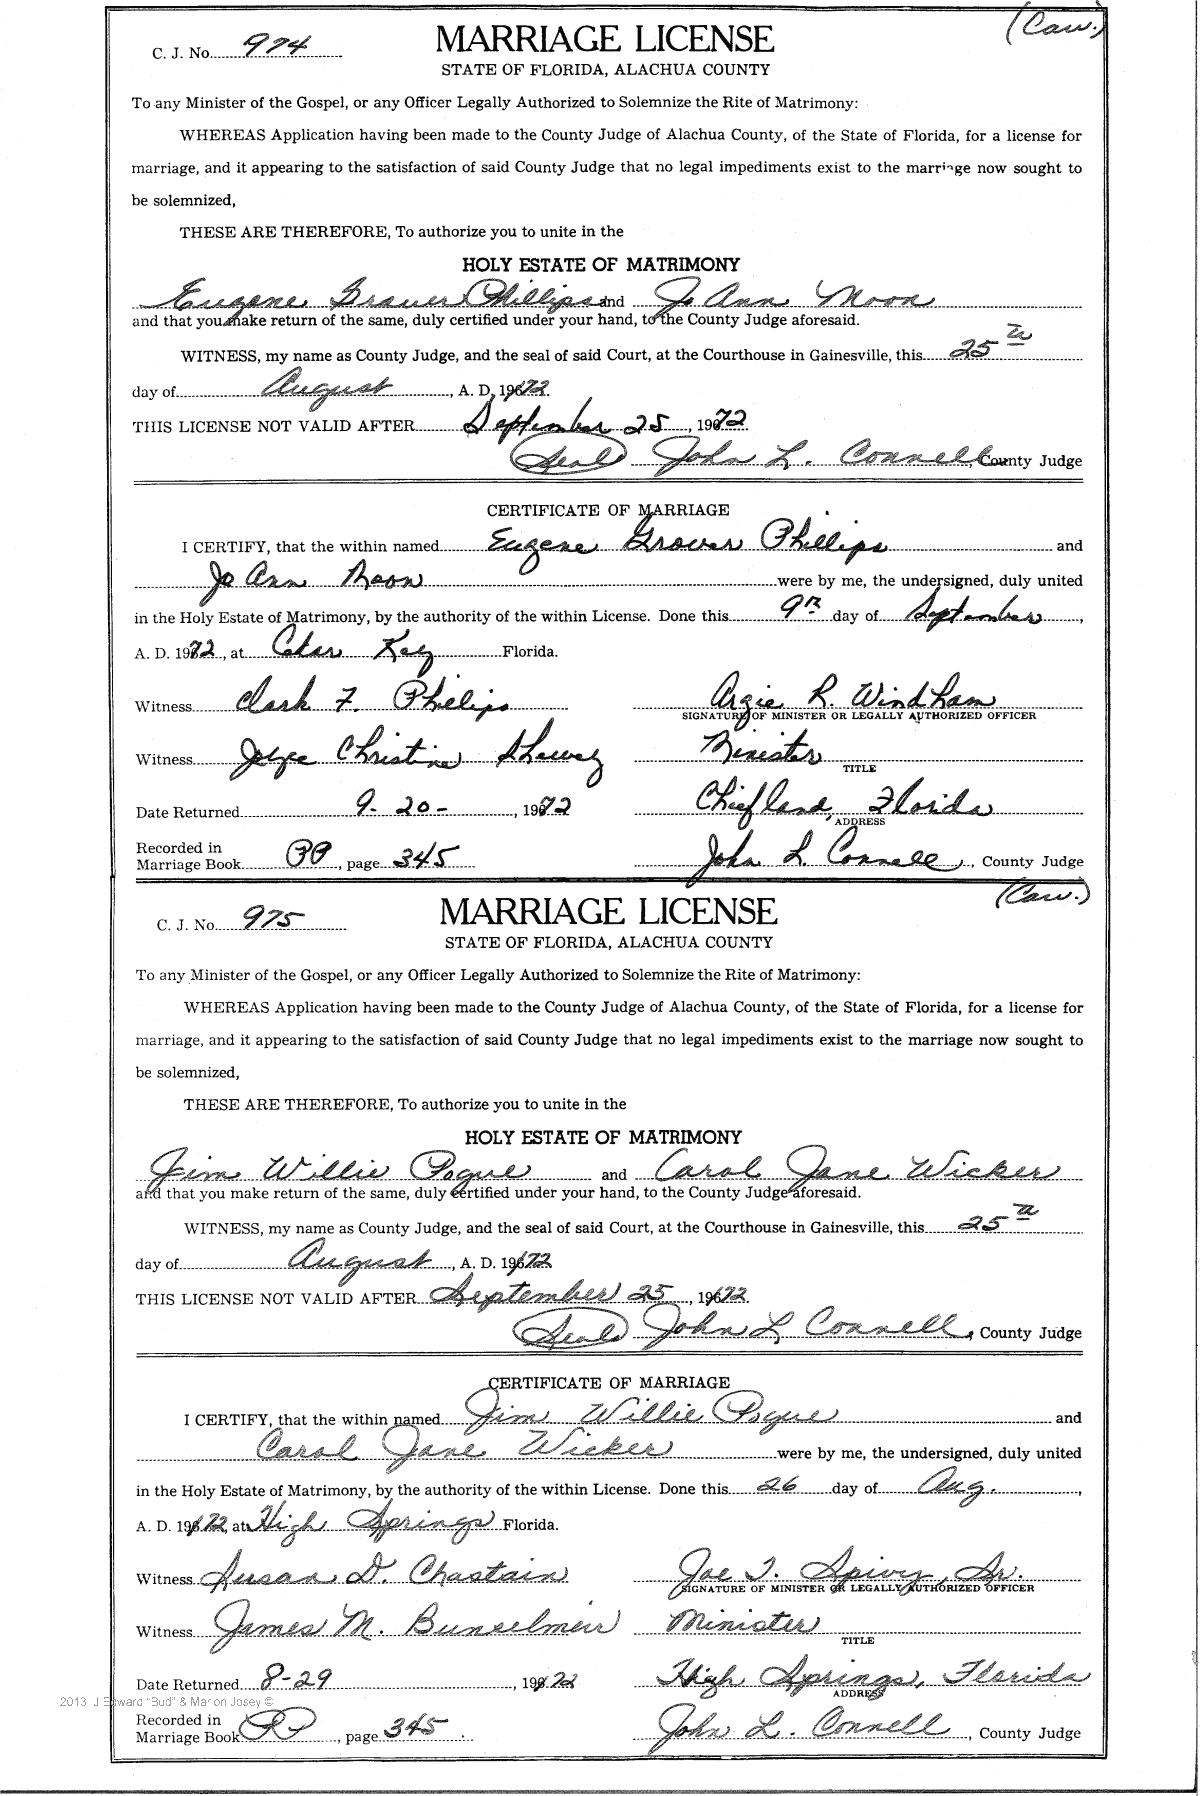 (Caw.)
C. J. No. 974 MARRIAGE LICENSE
STATE OF FLORIDA, ALACHUA COUNTY
To any Minister of the Gospel, or any Officer Legally Authorized to Solemnize the Rite of Matrimony:
WHEREAS Application having been made to the County Judge of Alachua County, of the State of Florida, for a license for
marriage, and it appearing to the satisfaction of said County Judge that no legal impediments exist to the marriage now sought to
be solemnized,
THESE ARE THEREFORE, To authorize you to unite in the
HOLY ESTATE OF MATRIMONY
Eugene Grover Phillips and Jo Ann Moon
and that you make return of the same, duly certified under your hand, to the County Judge aforesaid.
WITNESS, my name as County Judge, and the seal of said Court, at the Courthouse in Gainesville, this 25th
day of August, A. D. 1972
THIS LICENSE NOT VALID AFTER September 25, 1972
(Seal) John L. Connell, County Judge
CERTIFICATE OF MARRIAGE
I CERTIFY, that the within named Eugene Grover Phillips and
Jo Ann Moon were by me, the undersigned, duly united
in the Holy Estate of Matrimony, by the authority of the within License. Done this 9th day of September,
A. D. 1972, at Cedar Key Florida.
Witness Clark F. Phelips Argie R. Windham
SIGNATURE OF MINISTER OR LEGALLY AUTHORIZED OFFICER
Witness Joyce Christine Shewey Minister
TITLE
Date Returned 9-20-, 1972 Chiefland, Florida
ADDRESS
Recorded in
Marriage Book PP, page 345 John L. Connell, County Judge
(Caw.)
C. J. No. 975 MARRIAGE LICENSE
STATE OF FLORIDA, ALACHUA COUNTY
To any Minister of the Gospel, or any Officer Legally Authorized to Solemnize the Rite of Matrimony:
WHEREAS Application having been made to the County Judge of Alachua County, of the State of Florida, for a license for
marriage, and it appearing to the satisfaction of said County Judge that no legal impediments exist to the marriage now sought to
be solemnized,
THESE ARE THEREFORE, To authorize you to unite in the
HOLY ESTATE OF MATRIMONY
Jim Willie Pogue and Carol Jane Wicker
and that you make return of the same, duly certified under your hand, to the County Judge aforesaid.
WITNESS, my name as County Judge, and the seal of said Court, at the Courthouse in Gainesville, this 25th
day of August, A. D. 1972
THIS LICENSE NOT VALID AFTER September 25, 1972
(Seal) John L. Connell, County Judge
CERTIFICATE OF MARRIAGE
I CERTIFY, that the within named Jim Willie Pogue and
Carol Jane Wicker were by me, the undersigned, duly united
in the Holy Estate of Matrimony, by the authority of the within License. Done this 26 day of Aug.,
A. D. 1972, at High Springs Florida.
Witness Susan D. Chastain Joe T. Spivey, Sr.
SIGNATURE OF MINISTER OR LEGALLY AUTHORIZED OFFICER
Witness James M. Bunselmeir Minister
TITLE
Date Returned 8-29, 1972 High Springs, Florida
ADDRESS
2013 J Edward "Bud" & Marion Josey ©
Recorded in
Marriage Book PP, page 345 John L. Connell, County Judge